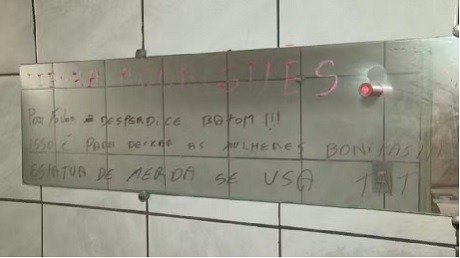 SUES
DESPERDICE BATOM!!!
ISSO É PARA DEIXAR AS MULHERES BONITAS!!!
ESTATUA DE MERDA SE USA TNT